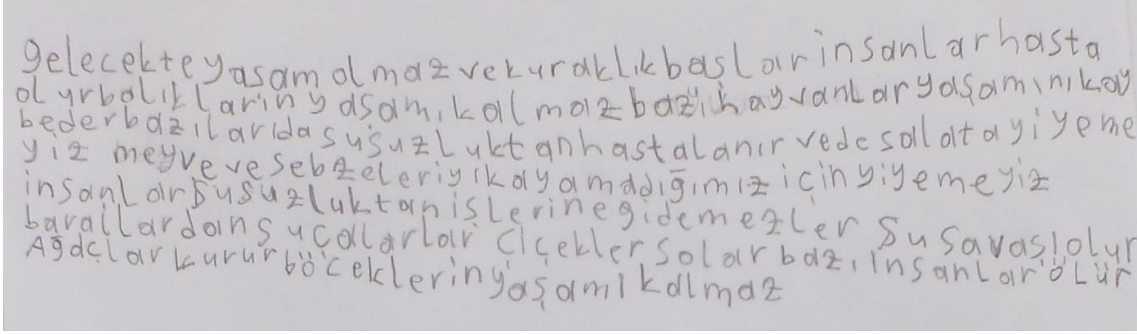 gelecekteyasam olmaz vekuraklıkbaslar insanlarhasta
olurbalıkların yasamı kalmaz bazı hayvanlar yaşamını kay
bederbazılarıda susuzluktanhastalanır vede salatayiyeme
yiz meyve ve sebzeleriyıkayamadığımız için yiyemeyiz
insanlarsusuzluktan islerinegidemezler Su Savaşı olur
barajlardan su çalarlar Çiçekler Solar bazı insanlar ölür
Ağaçlar kurur böceklerin yaşamı kalmaz